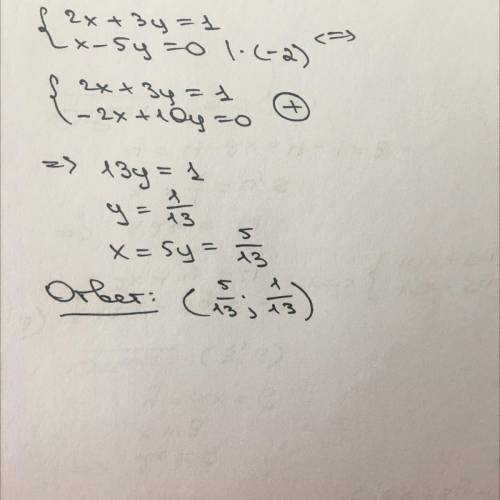 { 2x + 3y = 1
{ x - 5y = 0 | · (-2) <=>
{ 2x + 3y = 1
{ -2x + 10y = 0 (+)
=> 13y = 1
y = 1/13
x = 5y = 5/13
Ответ: (5/13; 1/13)